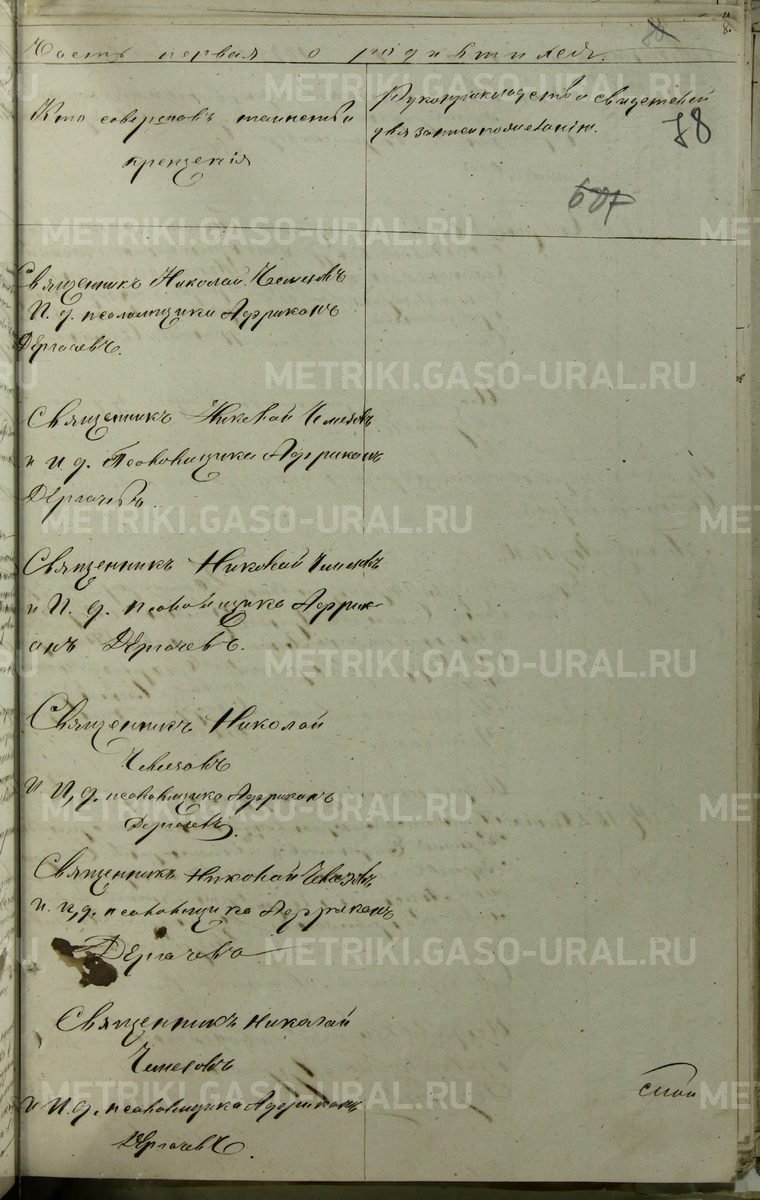 Часть первая о родившихся.
Кто совершалъ таинство
крещенія
Рукоприкладство свидетелей
для записи по желанію.
78
607
Священникъ Николай Чемезовъ
И. д. псаломщика Африканъ
Дергачевъ.
Священникъ Николай Чемезовъ
и И. д. Псаломщика Африканъ
Дергачевъ.
Священникъ Николай Чемезовъ
и И. д. псаломщика Африк-
анъ Дергачевъ.
Священникъ Николай
Чемезовъ
и И. д. псаломщика Африканъ
Дергачевъ.
Священникъ Николай Чемезовъ
и. и. д. псаломщика Африканъ
Дергачевъ
Священникъ Николай
Чемезовъ
и И. д. псаломщика Африканъ
Дергачевъ.
METRIKI.GASO-URAL.RU